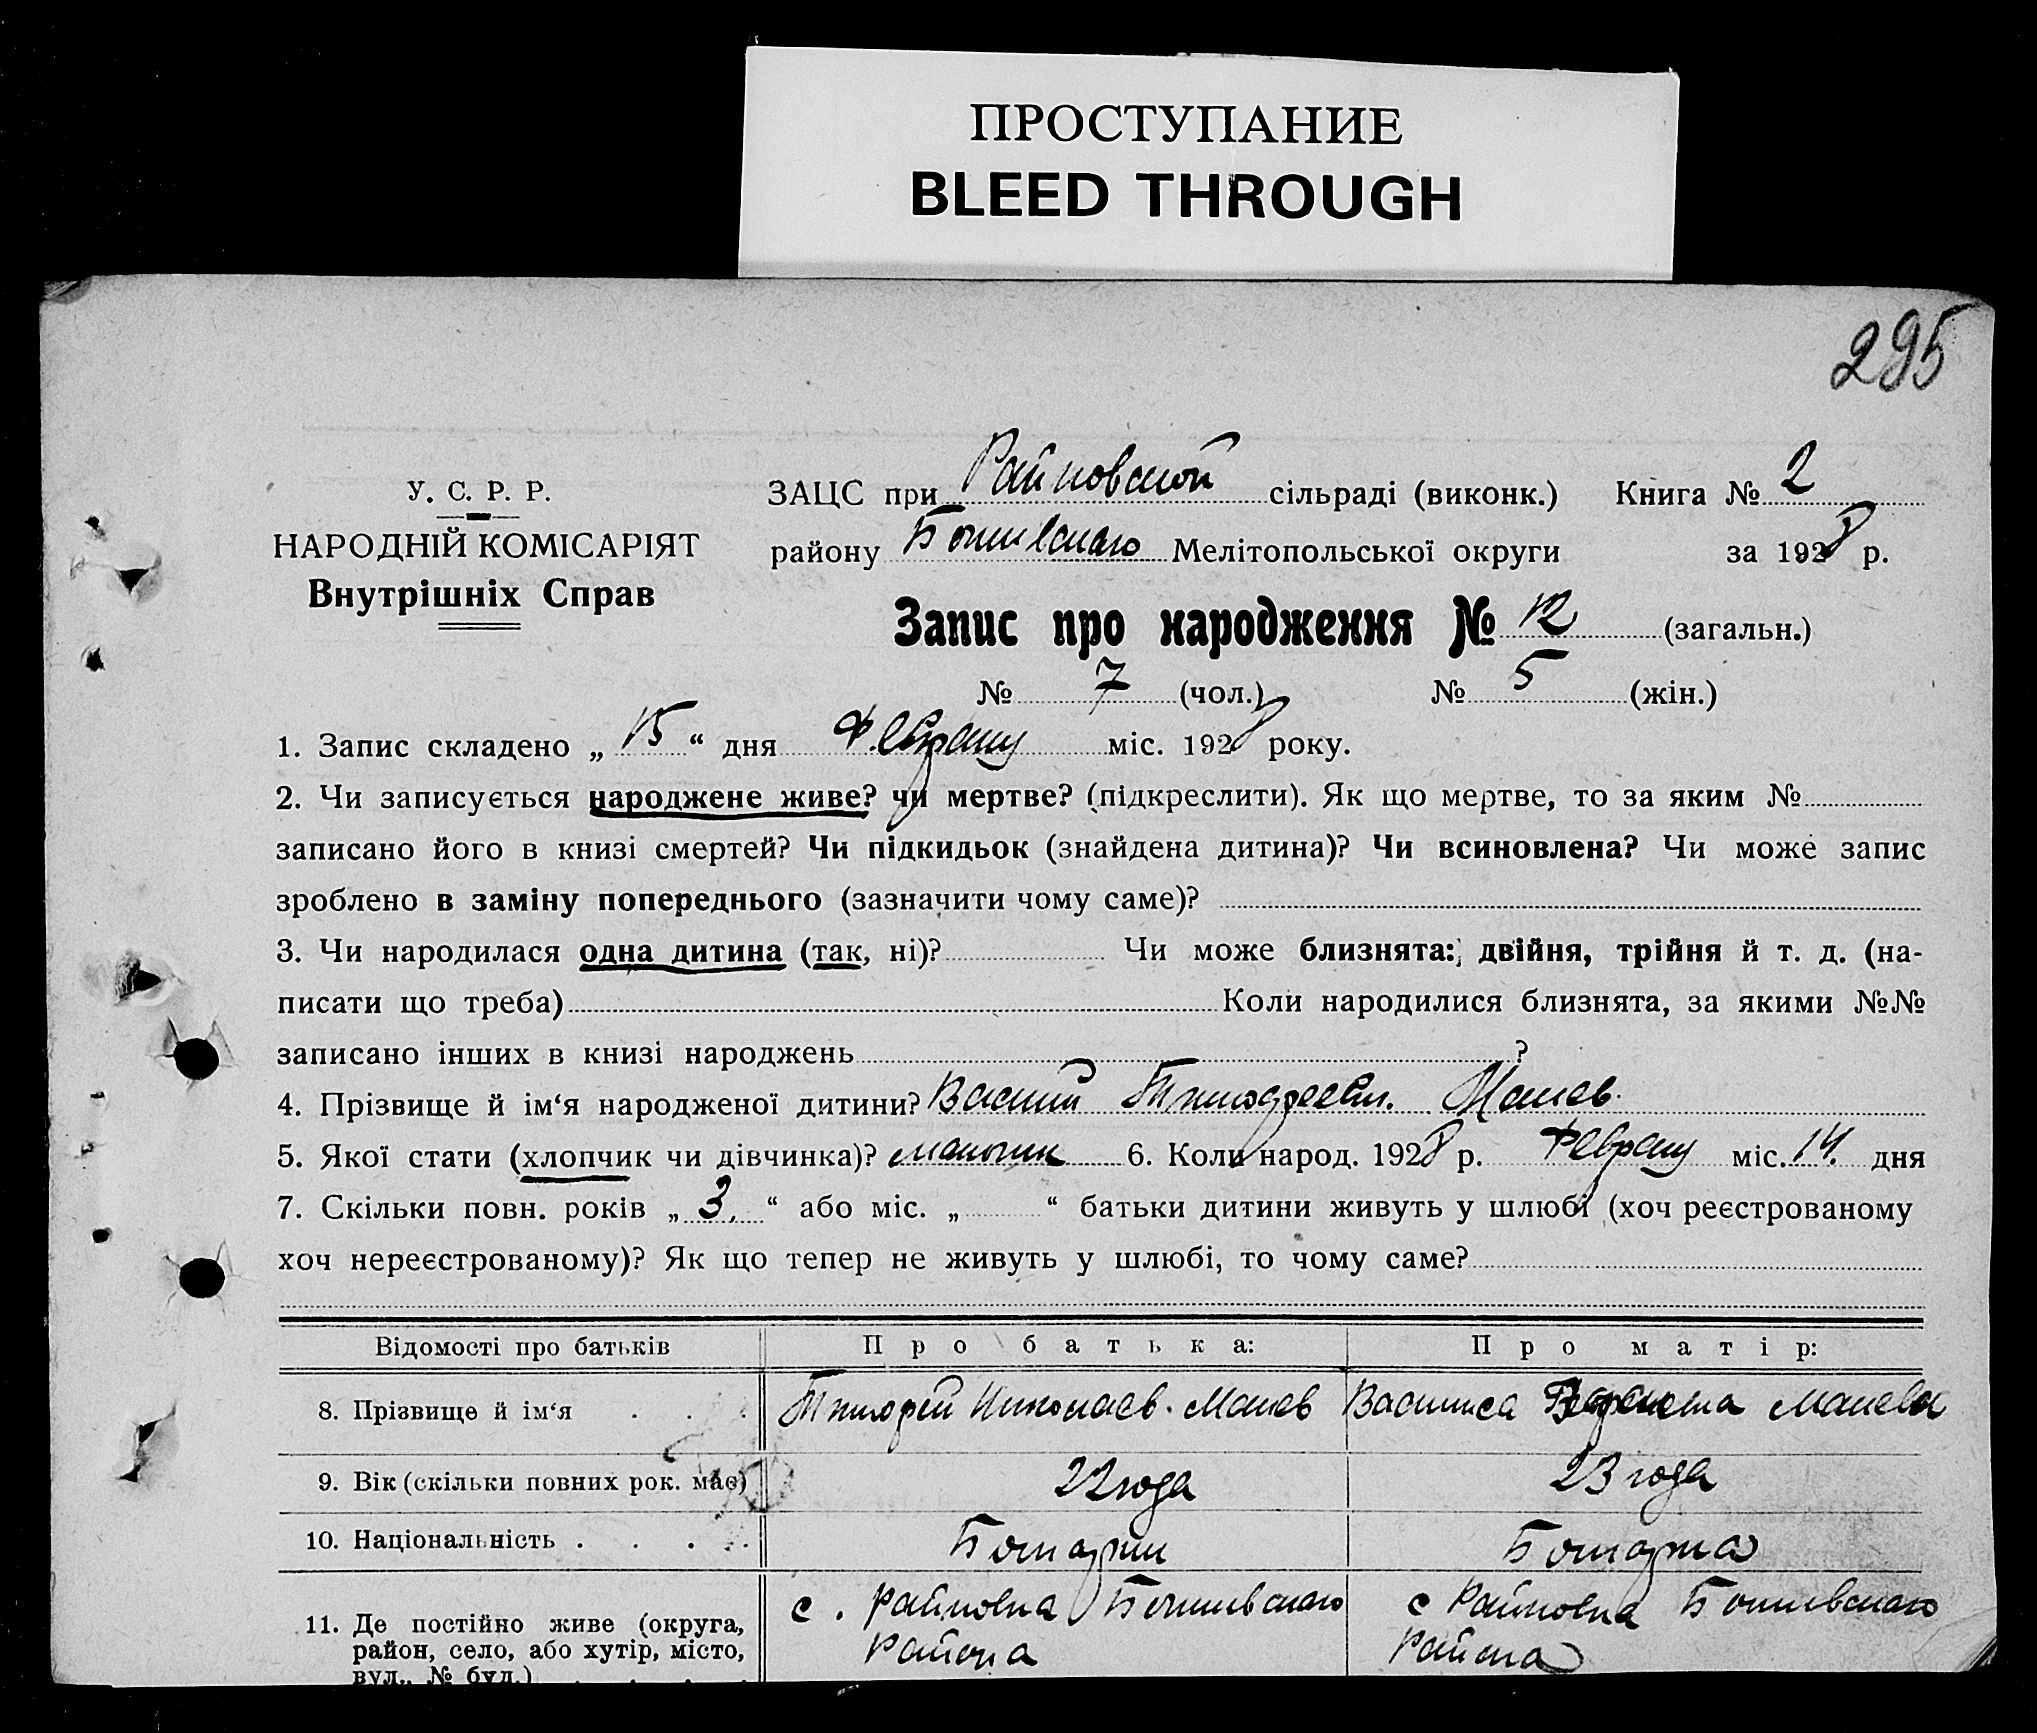 ПРОСТУПАНИЕ
BLEED THROUGH
295
У. С. Р. Р.
НАРОДНІЙ КОМІСАРІЯТ
Внутрішніх Справ
ЗАЦС при Райновской сільраді (виконк.) Книга № 2
району Мелітопольської округи за 1928 р.
Запис про народження № 12 (загальн.)
№ 7 (чол.) № 5 (жін.)
1. Запис складено „ 15 “ дня Февраля міс. 1928 року.
2. Чи записується народжене живе? чи мертве? (підкреслити). Як що мертве, то за яким №
записано його в книзі смертей? Чи підкидьок (знайдена дитина)? Чи всиновлена? Чи може запис
зроблено в заміну попереднього (зазначити чому саме)?
3. Чи народилася одна дитина (так, ні)? Чи може близнята: двійня, трійня й т. д. (на-
писати що треба) Коли народилися близнята, за якими №№
записано інших в книзі народжень ?
4. Прізвище й ім‘я народженої дитини? Василий Тимофеевич.
5. Якої стати (хлопчик чи дівчинка)? мальчик 6. Коли народ. 1928 р. Февраля міс. 14. дня
7. Скільки повн. років „ 3. “ або міс. „ “ батьки дитини живуть у шлюбі (хоч реєстрованому
хоч нереєстрованому)? Як що тепер не живуть у шлюбі, то чому саме?
Відомості про батьків
Про батька:
Про матір:
8. Прізвище й ім‘я . . .
Тимофей Николаев.
Василиса
9. Вік (скільки повних рок. має)
22 года
23 года
10. Національність . . . .
Болгарин
Болгарка
11. Де постійно живе (округа,
район, село, або хутір, місто,
вул., № буд.) . . . .
с. Райновка
района
с Райновка
района